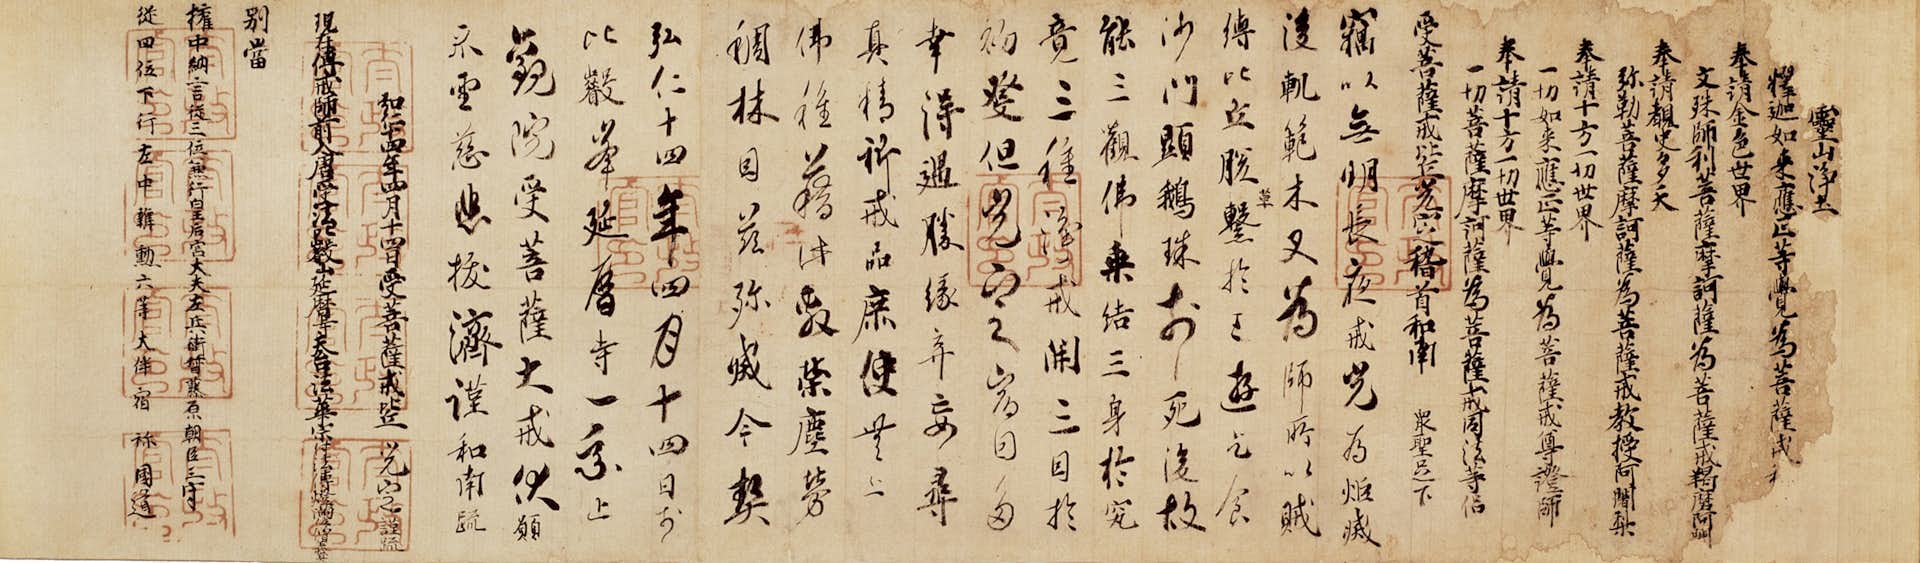 靈山淨土
釋迦如來應正等覺為菩薩戒和
奉請金色世界
文殊師利菩薩摩訶薩為菩薩戒羯磨阿闍
奉請覩史多天
弥勒菩薩摩訶薩為菩薩戒教授阿闍梨
奉請十方一切世界
一切如來應正等覺為菩薩戒尊證師
奉請十方一切世界
一切菩薩摩訶薩為菩薩戒同法等侶
受菩薩戒比丘光定稽首和南 衆聖足下
竊以無明長夜戒光為炬滅
後軌範木叉為師所以賊
縛比丘脫繫於王遊乞食
草
沙門顯鵝珠於死後故
能三觀佛乗結三身於究
竟三種淨戒開三因於
初發但光定宿因多
幸得遇勝緣弃妄尋
真精祈戒品庶使無上
佛種
塵勞
稠林因茲弥滅今契
弘仁十四年四月十四日於
比叡峯延曆寺一乘止
觀院受菩薩大戒伏願
慈悲拔濟謹和南疏
弘仁十四年四月十四日受菩薩戒比丘 光定謹疏
現在傳戒師前入唐受法沙門
別當
權中納言從三位兼行皇后宮大夫左兵衛督藤原朝臣三守
從四位下行左中辨勳六等大伴宿祢國道